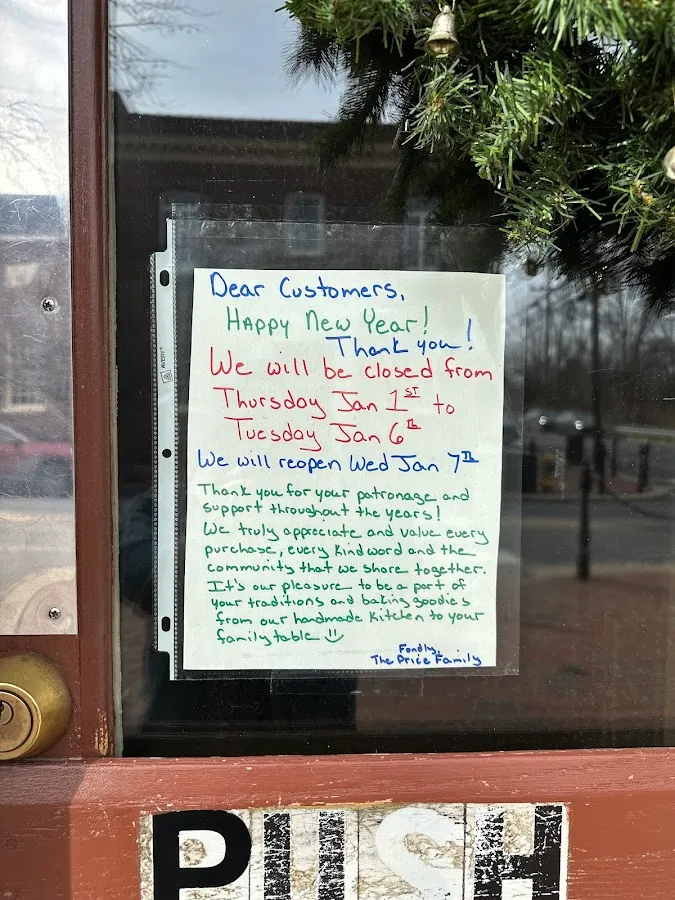 Dear Customers,
Happy New Year!
Thank you!
We will be closed from
Thursday Jan 1ST to
Tuesday Jan 6th
We will reopen Wed Jan 7th
Thank you for your patronage and
support throughout the years!
We truly appreciate and value every
purchase, every kind word and the
community that we share together.
It's our pleasure to be a part of
your traditions and baking goodies
from our handmade kitchen to your
family table
Fondly,
The Price Family
AVERY
PUSH